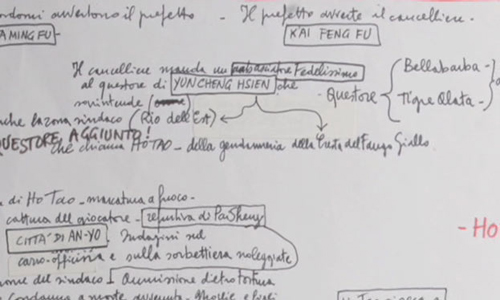 avvertono il prefetto - Il prefetto avverte il cancelliere.
AMING FU - KAI FENG FU
Il cancelliere manda un ambasciatore Fedelissimo
al questore di YUNCHENG HSIEN che
- Questore
Bellabarba
Tigre Alata
anche la zona sindaco (Rio dell'Est)
QUESTORE, AGGIUNTO!
che chiama HO TAO - della gendarmeria della Cresta del Fango Giallo
di Ho Tao - marcatura a fuoco -
cattura del giocatore - refurtiva di Pa Sheng
CITTÀ DI AN-YO Indagini sul
carro-officina e sulla sorbettiera noleggiate
- HO
del sindaco - Ammissione dietro tortura
a morte